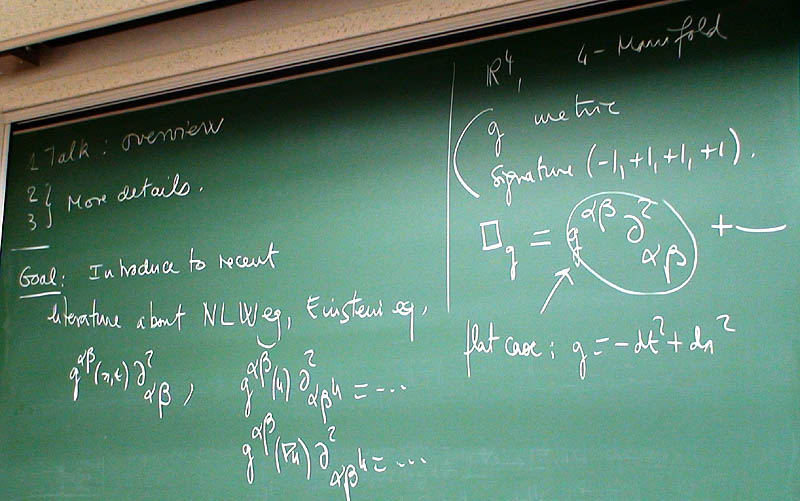 1 Talk : overview
2 } More details.
3
Goal: Introduce to recent
literature about NLW eq, Einstein eq.
g^{αβ}(x,t) ∂²_{αβ} , g^{αβ}(u) ∂²_{αβ} u = ...
g^{αβ}(∇u) ∂²_{αβ} u = ...
ℝ⁴, 4-Manifold
( g metric
signature (-1, +1, +1, +1).
□_g = g^{αβ} ∂²_{αβ} + —
flat case : g = -dt² + dx²